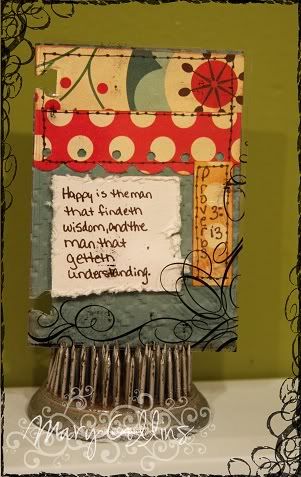 Happy is the man
that findeth
wisdom, and the
man that
getteth
understanding.
Proverbs
3:
13
Mary Collins